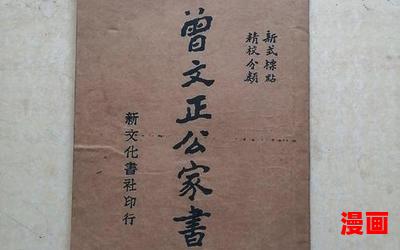 新式標點
精校分類
曾文正公家書
新文化書社印行
漫画